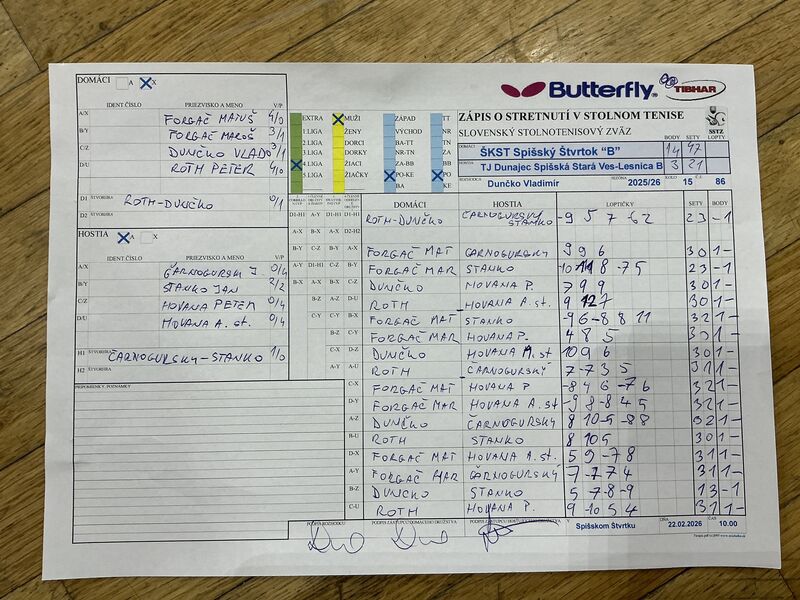 DOMÁCI A X
IDENT.ČÍSLO PRIEZVISKO A MENO V/P
A/X FORGAČ MATÚŠ 4/0
B/Y FORGAČ MAROŠ 3/1
C/Z DUNČKO VLADO 3/1
D/U ROTH PETER 4/0
D1 ŠTVORHRA ROTH-DUNČKO 0/1
D2 ŠTVORHRA
HOSTIA A X
IDENT.ČÍSLO PRIEZVISKO A MENO V/P
A/X ČARNOGURSK J 0/4
B/Y STANKO JAN 2/2
C/Z HOVANA PETER 0/4
D/U HOVANA A. st. 0/4
H1 ŠTVORHRA ČARNOGURSKY-STANKO 1/0
H2 ŠTVORHRA
PRIPOMIENKY, POZNÁMKY
EXTRA MUŽI ZÁPAD TT
1.LIGA ŽENY VÝCHOD NR
2.LIGA DORCI BA-TT TN
3.LIGA DORKY NR-TN ZA
4.LIGA ŽIACI ZA-BB BB
5.LIGA ŽIAČKY PO-KE PO
BA KE
Butterfly TIBHAR
ZÁPIS O STRETNUTÍ V STOLNOM TENISE
SLOVENSKÝ STOLNOTENISOVÝ ZVÄZ SSTZ
BODY SETY LOPTY
DOMÁCI ŠKST Spišský Štvrtok "B" 14 47
HOSTIA TJ Dunajec Spišská Stará Ves-Lesnica B 3 21
Dunčko Vladimír SEZÓNA 2025/26 KOLO 15 86
DOMÁCI HOSTIA LOPTIČKY SETY BODY
ROTH-DUNČKO ČARNOGURSKY STANKO -9 5 7 -6 2 23 -1
FORGAČ MAT ČARNOGURSKÝ 9 9 6 30 1-
FORGAČ MAR STANKO -10 8 -7 5 23 -1
DUNČKO HOVANA P. 7 9 9 30 1-
ROTH HOVANA A.st. 9 12 7 30 1-
FORGAČ MAT STANKO -9 6 -8 8 11 32 1-
FORGAČ MAR HOVANA P. 4 8 5 30 1-
DUNČKO HOVANA A.st 10 9 6 30 1-
ROTH ČARNOGURSKÝ 7 -7 3 5 31 1-
C-X FORGAČ MAT HOVANA P -8 4 6 -7 6 32 1-
D-Y FORGAČ MAR HOVANA A.st -9 8 -8 4 5 32 1-
A-Z DUNČKO ČARNOGURSKÝ 8 10 -5 -8 8 32 1-
B-U ROTH STANKO 8 10 5 30 1-
D-X FORGAČ MAT HOVANA A.st. 5 9 -7 8 31 1-
A-Y FORGAČ MAR ČARNOGURSKÝ 7 -7 7 4 31 1-
B-Z DUNČKO STANKO 5 -7 -8 -9 13 -1
C-U ROTH HOVANA P. 9 -10 5 4 31 1-
PODPIS ROZHODCU PODPIS ZÁSTUPCU DOMÁCEHO DRUŽSTVA PODPIS ZÁSTUPCU HOSŤUJÚCEHO DRUŽSTVA V Spišskom Štvrtku DŇA 22.02.2026 ČAS 10.00